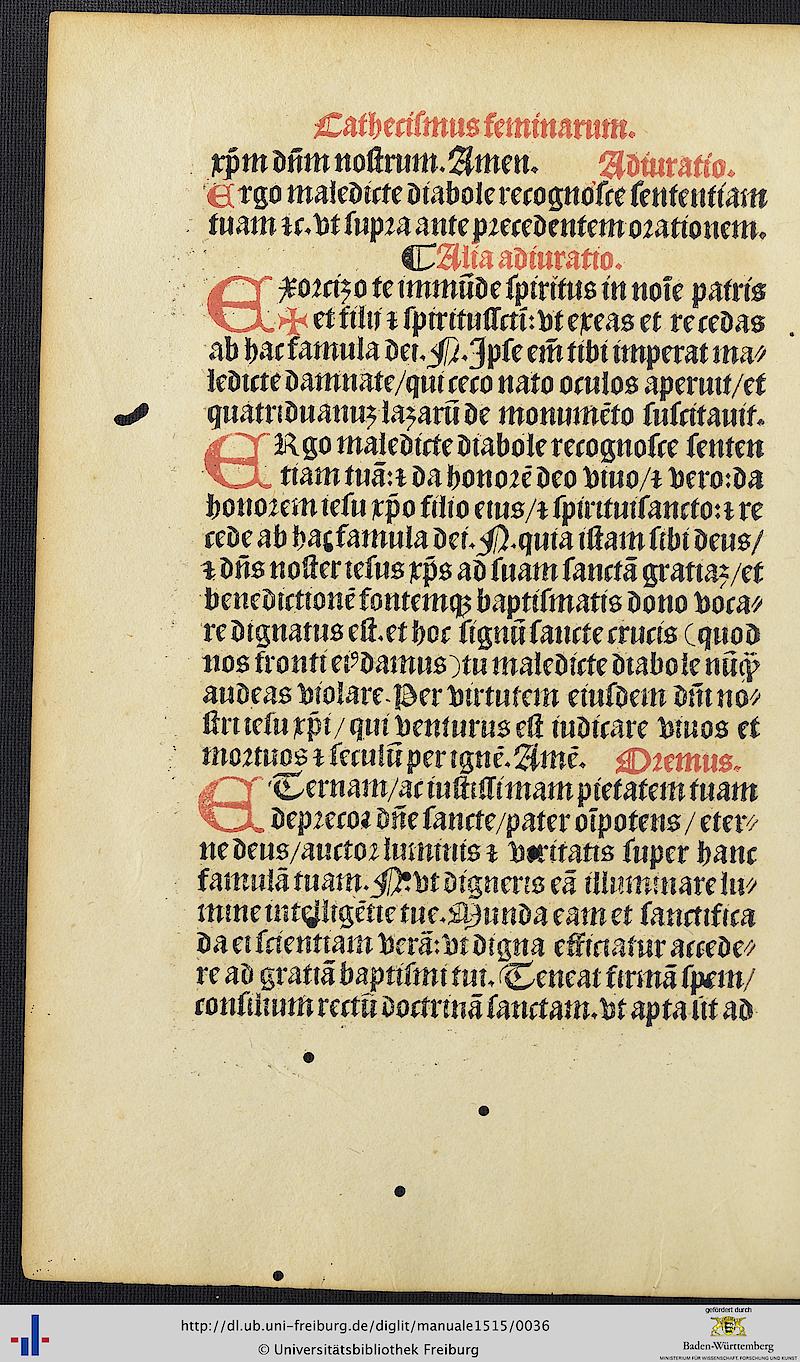 Cathecismus feminarum.
xp̄m dn̄m nostrum. Amen. Adiuratio.
Ergo maledicte diabole recognosce sententiam
tuam ⁊c. vt supra ante precedentem orationem.
⸿ Alia adiuratio.
Exorcizo te immūde spiritus in noīe patris
✠ et filij ⁊ spiritussctī: vt exeas et recedas
ab hac famula dei. N. Ipse em̄ tibi imperat ma⸗
ledicte damnate/qui ceco nato oculos aperuit/et
quatriduanuꝫ lazarū de monumēto suscitauit.
ERgo maledicte diabole recognosce senten
tiam tuā: ⁊ da honorē deo viuo/⁊ vero: da
honorem iesu xp̄o filio eius/⁊ spirituisancto: ⁊ re
cede ab hac famula dei. N. quia istam sibi deus/
⁊ dn̄s noster iesus xp̄s ad suam sanctā gratiaꝫ/et
benedictionē fontemqꝫ baptismatis dono voca⸗
re dignatus est. et hoc signū sancte crucis (quod
nos fronti eiꝰ damus) tu maledicte diabole nūq̄ꝫ
audeas violare. Per virtutem eiusdem dn̄i no⸗
stri iesu xp̄i / qui venturus est iudicare viuos et
mortuos ⁊ seculū per ignē. Amē. Oremus.
ETernam/ac iustissimam pietatem tuam
deprecor dn̄e sancte/pater oīpotens / eter⸗
ne deus/auctor luminis ⁊ veritatis super hanc
famulā tuam. N. vt digneris eā illuminare lu⸗
mine intelligētie tue. Munda eam et sanctifica
da ei scientiam verā: vt digna efficiatur accede⸗
re ad gratiā baptismi tui. Teneat firmā spem/
consilium rectū doctrinā sanctam. vt apta sit ad
http://dl.ub.uni-freiburg.de/diglit/manuale1515/0036
© Universitätsbibliothek Freiburg
gefördert durch
Baden-Württemberg
MINISTERIUM FÜR WISSENSCHAFT, FORSCHUNG UND KUNST